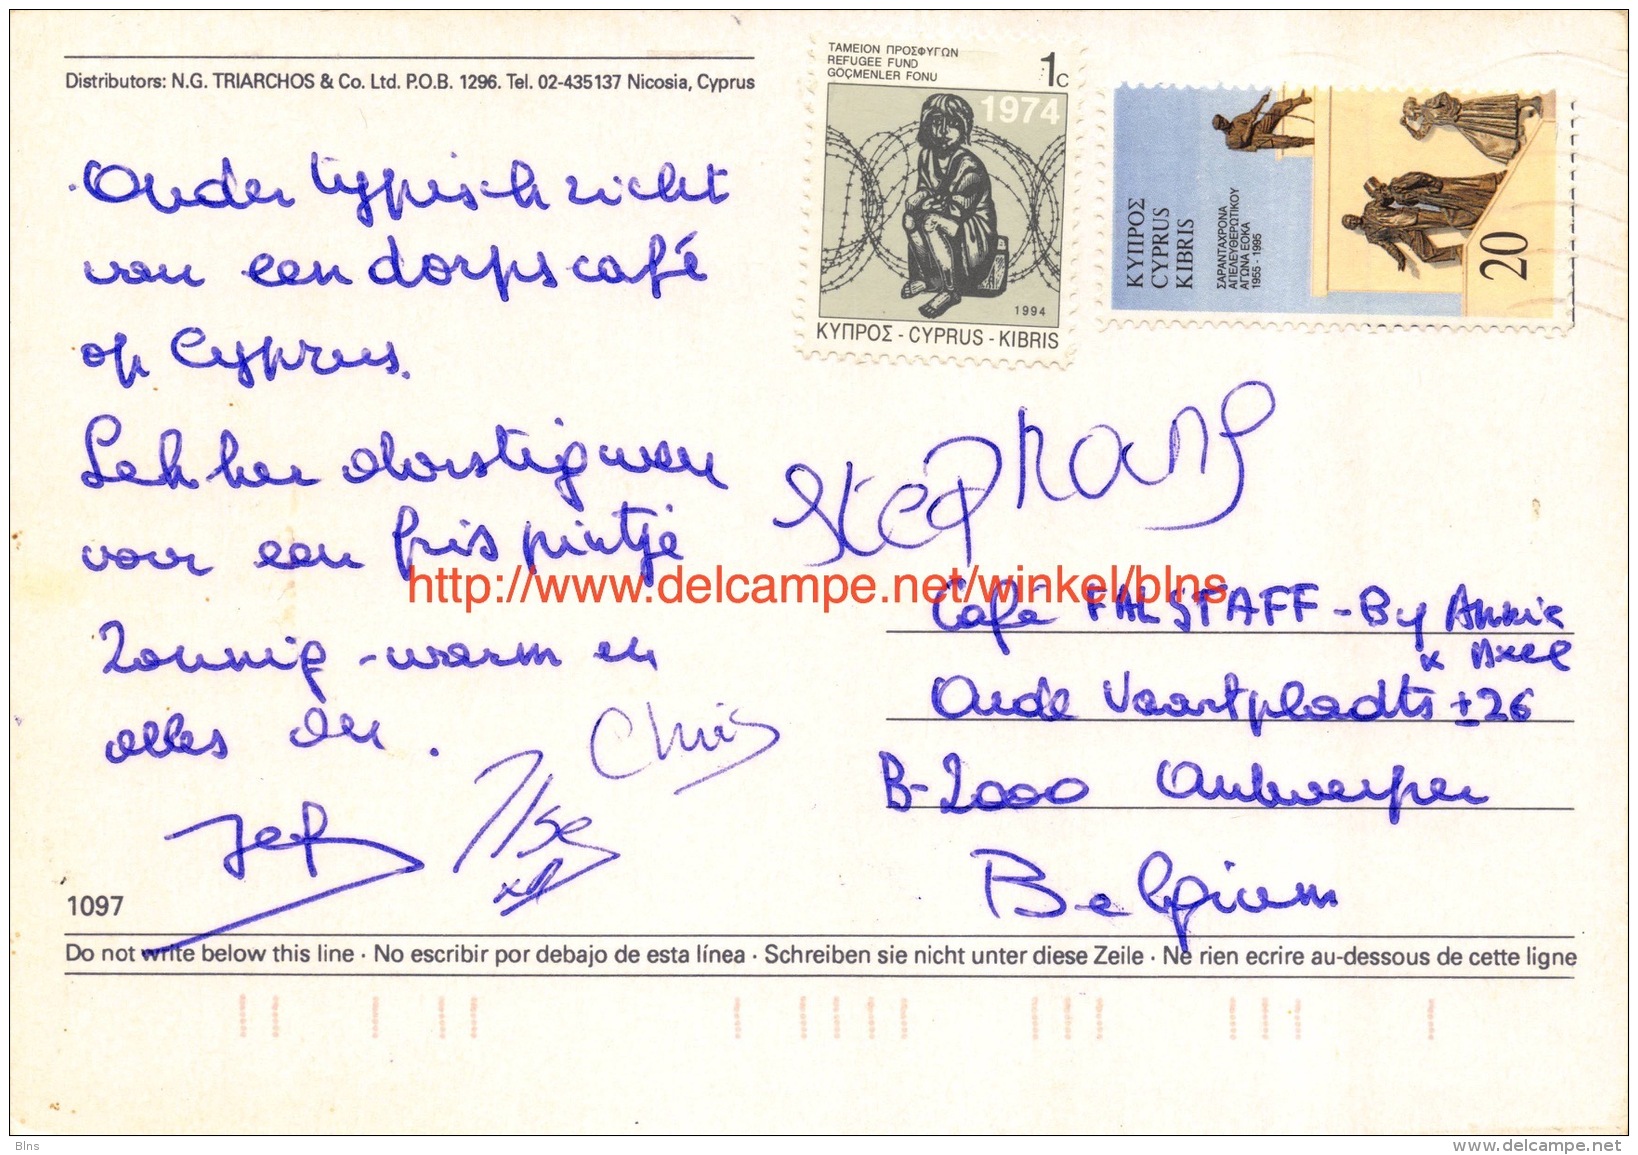 Distributors: N.G. TRIARCHOS & Co. Ltd. P.O.B. 1296. Tel. 02-435137 Nicosia, Cyprus
ΤΑΜΕΙΟΝ ΠΡΟΣΦΥΓΩΝ
REFUGEE FUND
GÖÇMENLER FONU
1c
1974
1994
ΚΥΠΡΟΣ - CYPRUS - KIBRIS
ΚΥΠΡΟΣ
CYPRUS
KIBRIS
ΣΑΡΑΝΤΑΧΡΟΝΑ
ΑΠΕΛΕΥΘΕΡΩΤΙΚΟΥ
ΑΓΩΝΑ ΕΟΚΑ
1955 - 1995
20
Ouder typisch zicht
van een dorpscafé
op Cyprus.
Lekker dorstig weer
voor een fris pintje
Zonnig - warm en
alles der.
Chris
Jef
Ilse
Stephany
http://www.delcampe.net/winkel/blns
Café FALSTAFF - By Annie
x Axel
Oude Vaartplaats ± 26
B-2000 Antwerpen
Belgium
1097
Do not write below this line · No escribir por debajo de esta línea · Schreiben sie nicht unter diese Zeile · Ne rien ecrire au-dessous de cette ligne
Blns
www.delcampe.net